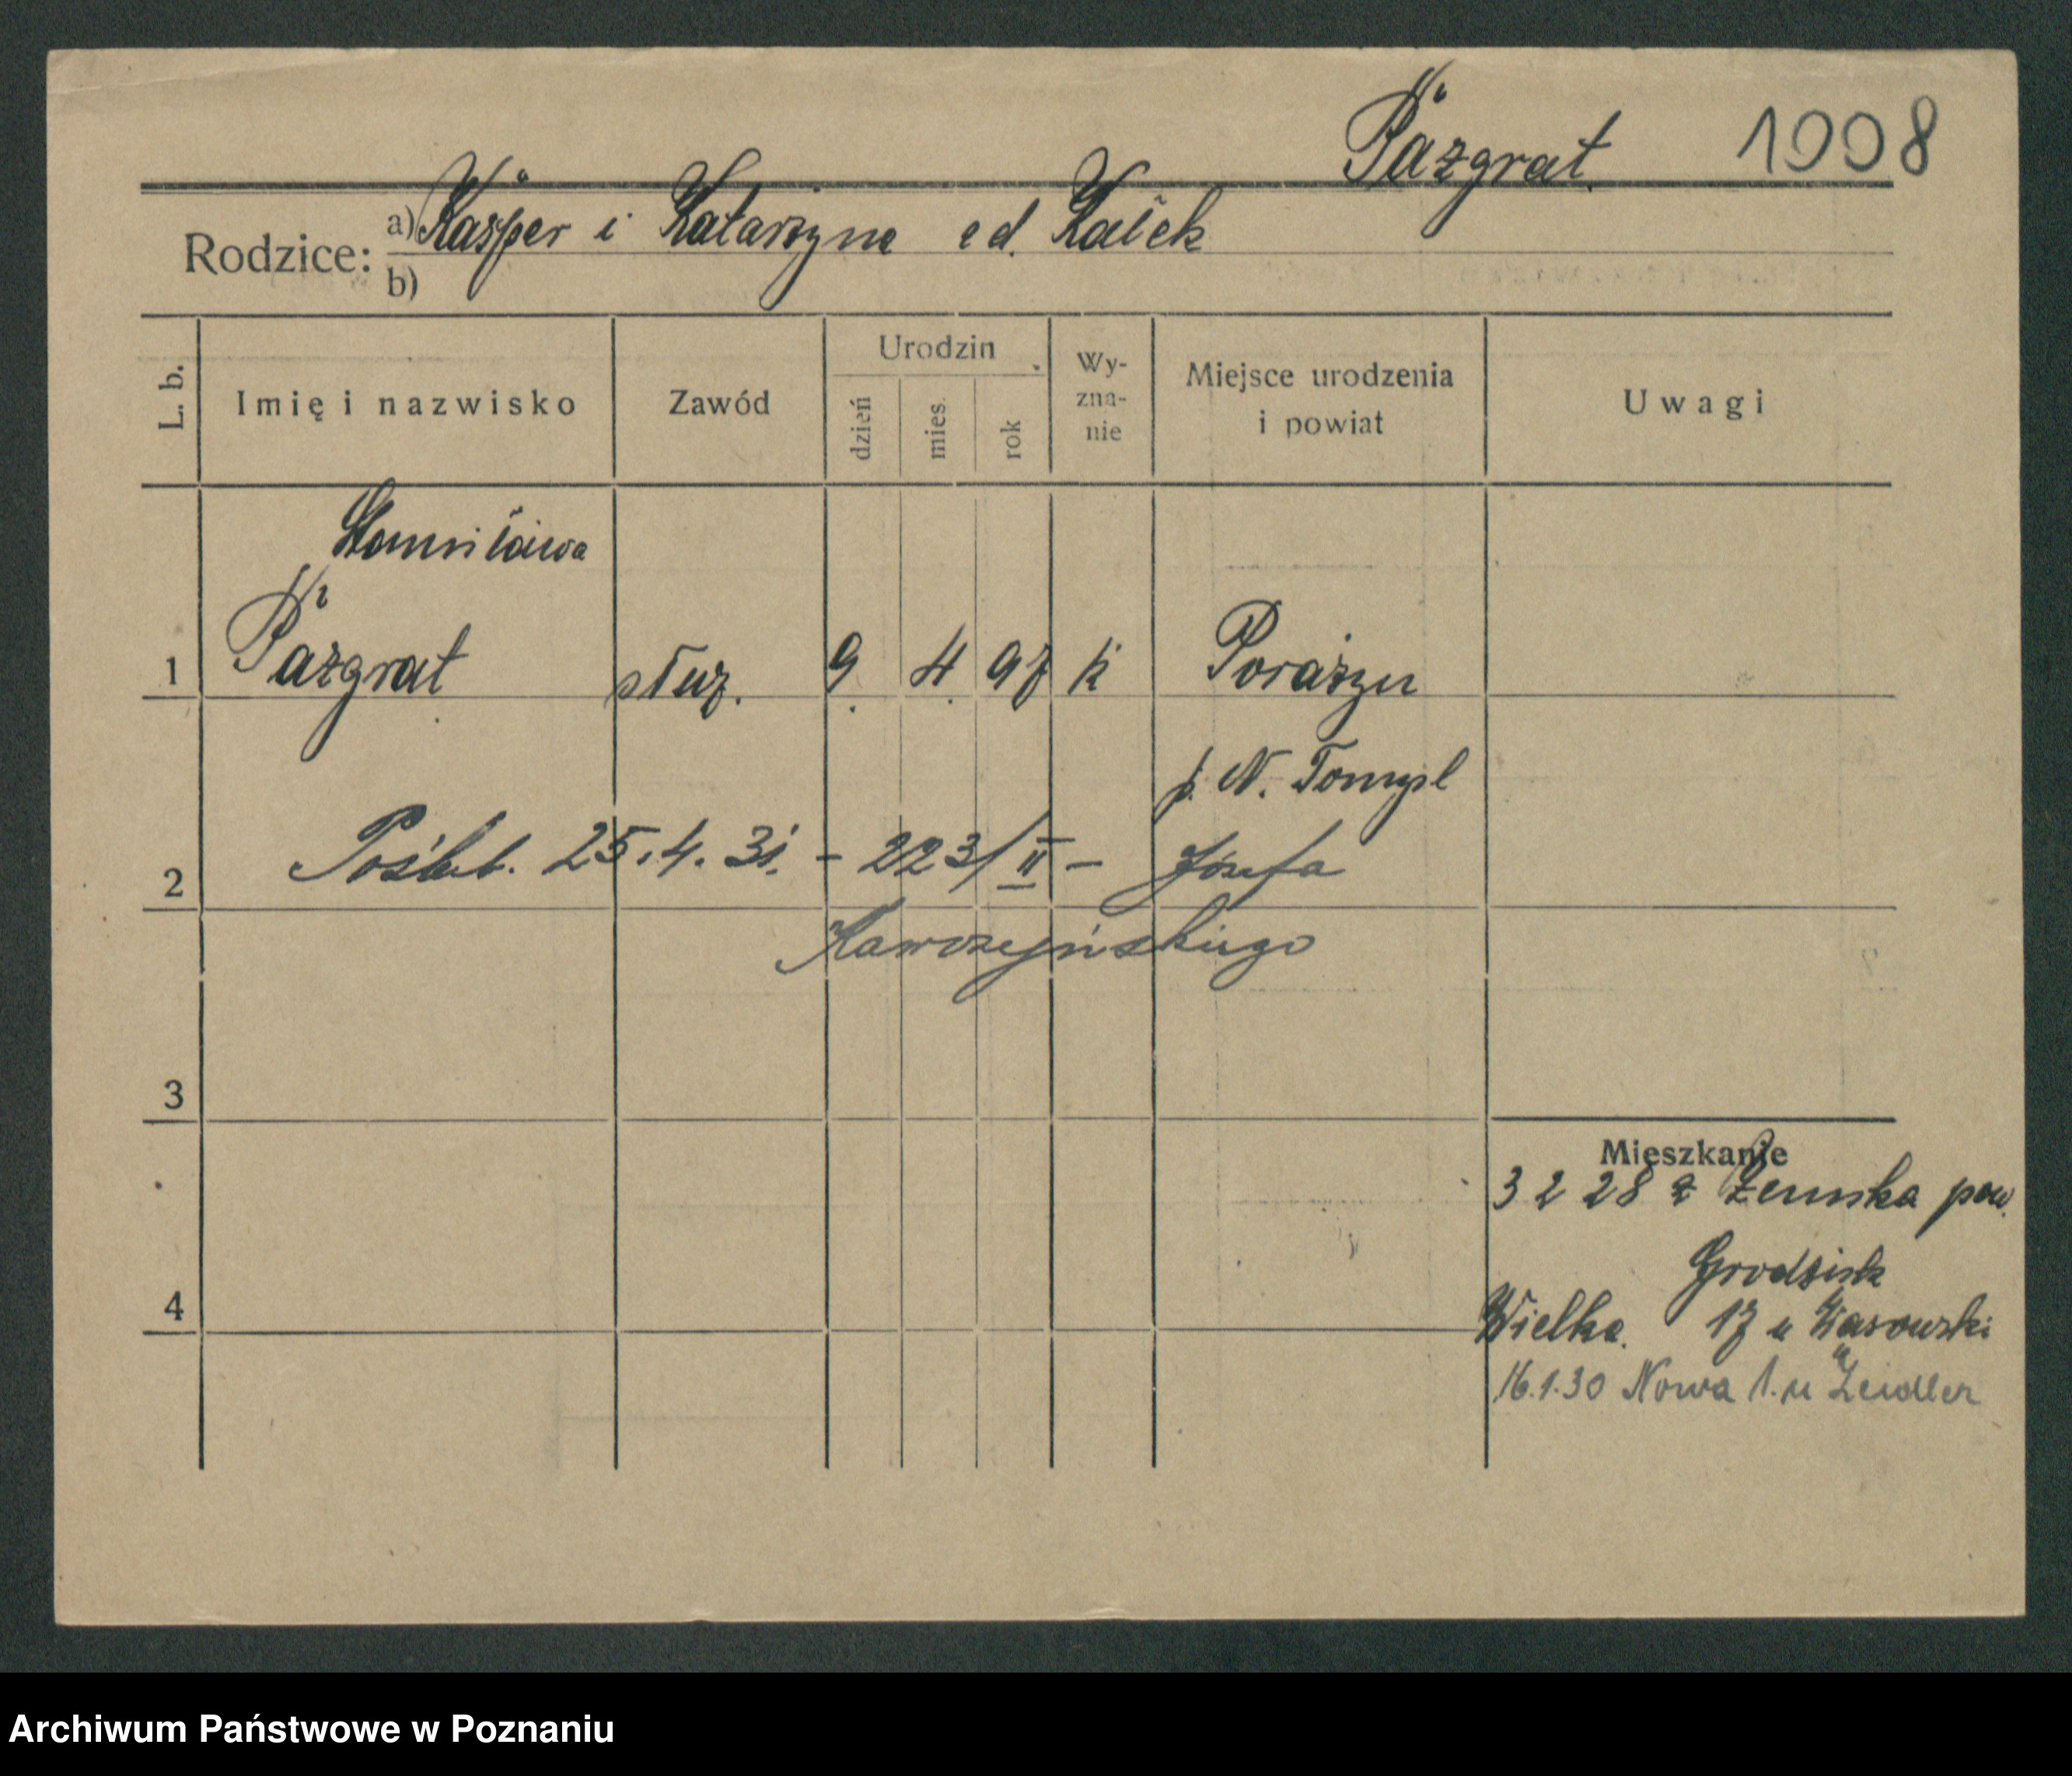 Pazgrat. 1008
Rodzice: a) Kasper i Katarzyna
b)
L. b. Imię i nazwisko Zawód Urodzin dzień mies. rok Wy-zna-nie Miejsce urodzenia i powiat Uwagi
Stanisława
1 Pazgrat służ. 9. 4. 97 k Porażyn
p. N. Tomysl
2 Poślub. 25.4.31. – 223/II – Józefa
Kawczyńskiego
3
Mieszkanie
3 2 28 z Zemska pow.
Grodzisk
4 Wielka. 17 u
16.1.30 Nowa 1. u Zeidler
Archiwum Państwowe w Poznaniu